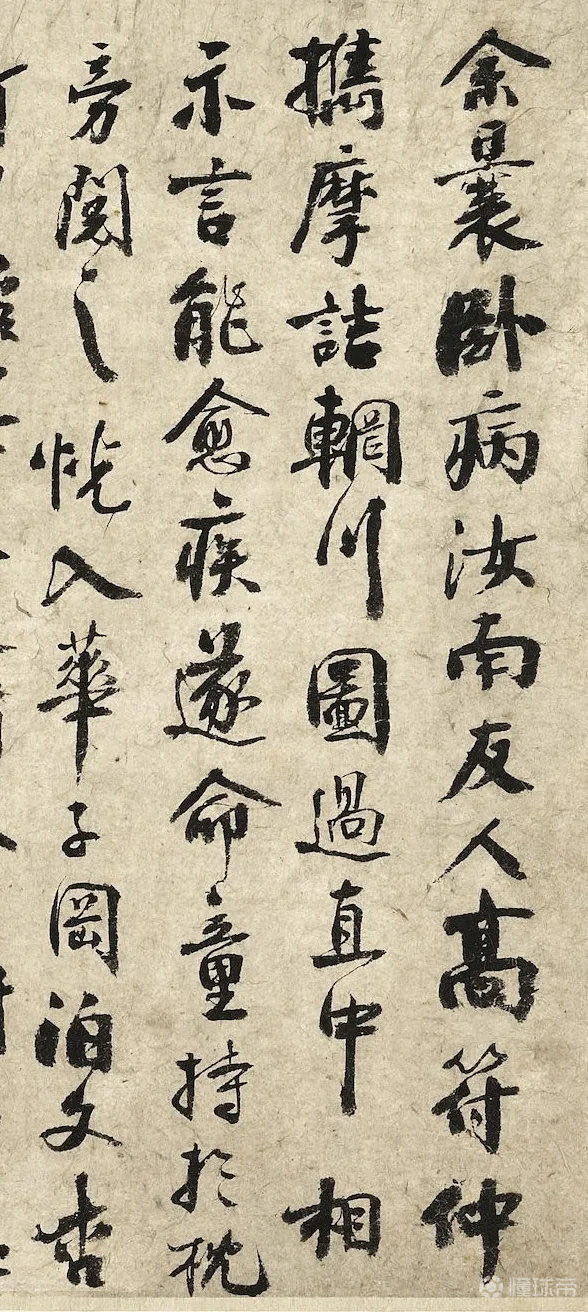 余曩卧病汝南友人高符仲
攜摩詰輞川圖過直中相
示言能愈疾遂命童持於枕
旁閱之恍入華子岡泊文杏
懂球帝